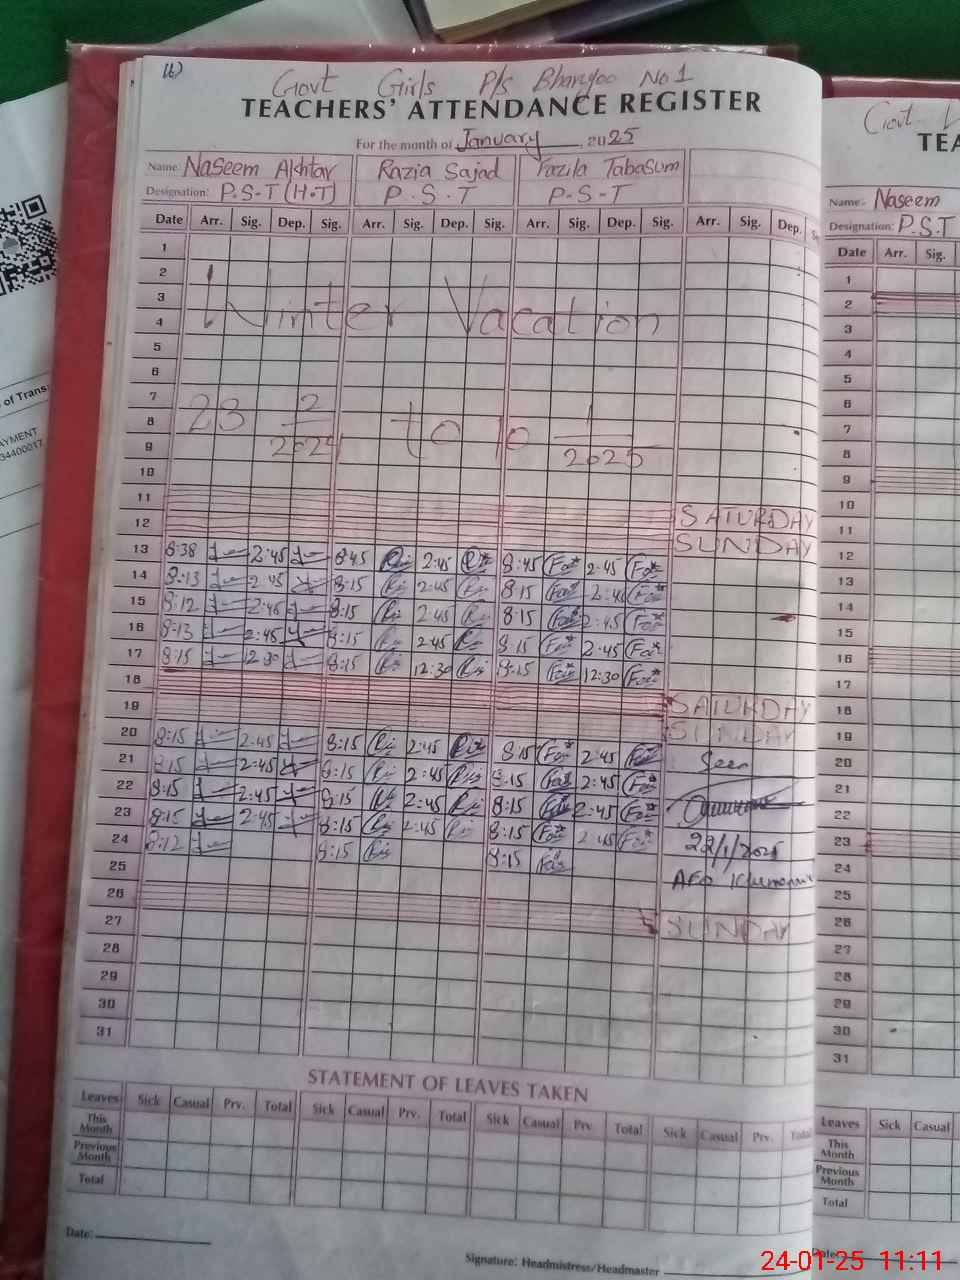 (6)
Govt Girls P/s Bhangoo No 1
TEACHERS' ATTENDANCE REGISTER
For the month of January, 2025
Name: Naseem Akhtar Razia Sajad Fazila Tabasum
Designation: P.S.T (H.T) P.S.T P-S-T
Date Arr. Sig. Dep. Sig. Arr. Sig. Dep. Sig. Arr. Sig. Dep. Sig. Arr. Sig. Dep.
1
2
3
4 Winter Vacation
5
6
7
8 23 2/2024 to 10 1/2025
9
10
11 SATURDAY
12 SUNDAY
13 8:38 2:45 8:45 2:45 8:45 2:45
14 8:13 2:45 8:15 2:45 8:15 2:45
15 8:12 2:45 8:15 2:45 8:15 2:45
16 8:13 2:45 8:15 2:45 8:15 2:45
17 8:15 12:30 8:15 12:30 8:15 12:30
18 SATURDAY
19 SUNDAY
20 8:15 2:45 8:15 2:45 8:15 2:45 Seen
21 8:15 2:45 8:15 2:45 8:15 2:45
22 8:15 2:45 8:15 2:45 8:15 2:45
23 8:15 2:45 8:15 2:45 8:15 2:45 22/1/2025
24 8:12 8:15 8:15 AEO
25
26 SUNDAY
27
28
29
30
31
STATEMENT OF LEAVES TAKEN
Leaves Sick Casual Prv. Total Sick Casual Prv. Total Sick Casual Prv Total Sick Casual Prv. Total
This Month
Previous Month
Total
Date:
Signature: Headmistress/Headmaster
Govt
TEA
Name:- Naseem
Designation: P.S.T
Date Arr. Sig.
1
2
3
4
5
6
7
8
9
10
11
12
13
14
15
16
17
18
19
20
21
22
23
24
25
26
27
28
29
30
31
Leaves Sick Casual
This Month
Previous Month
Total
Date:
of Trans
AYMENT
34400017
24-01-25 11:11